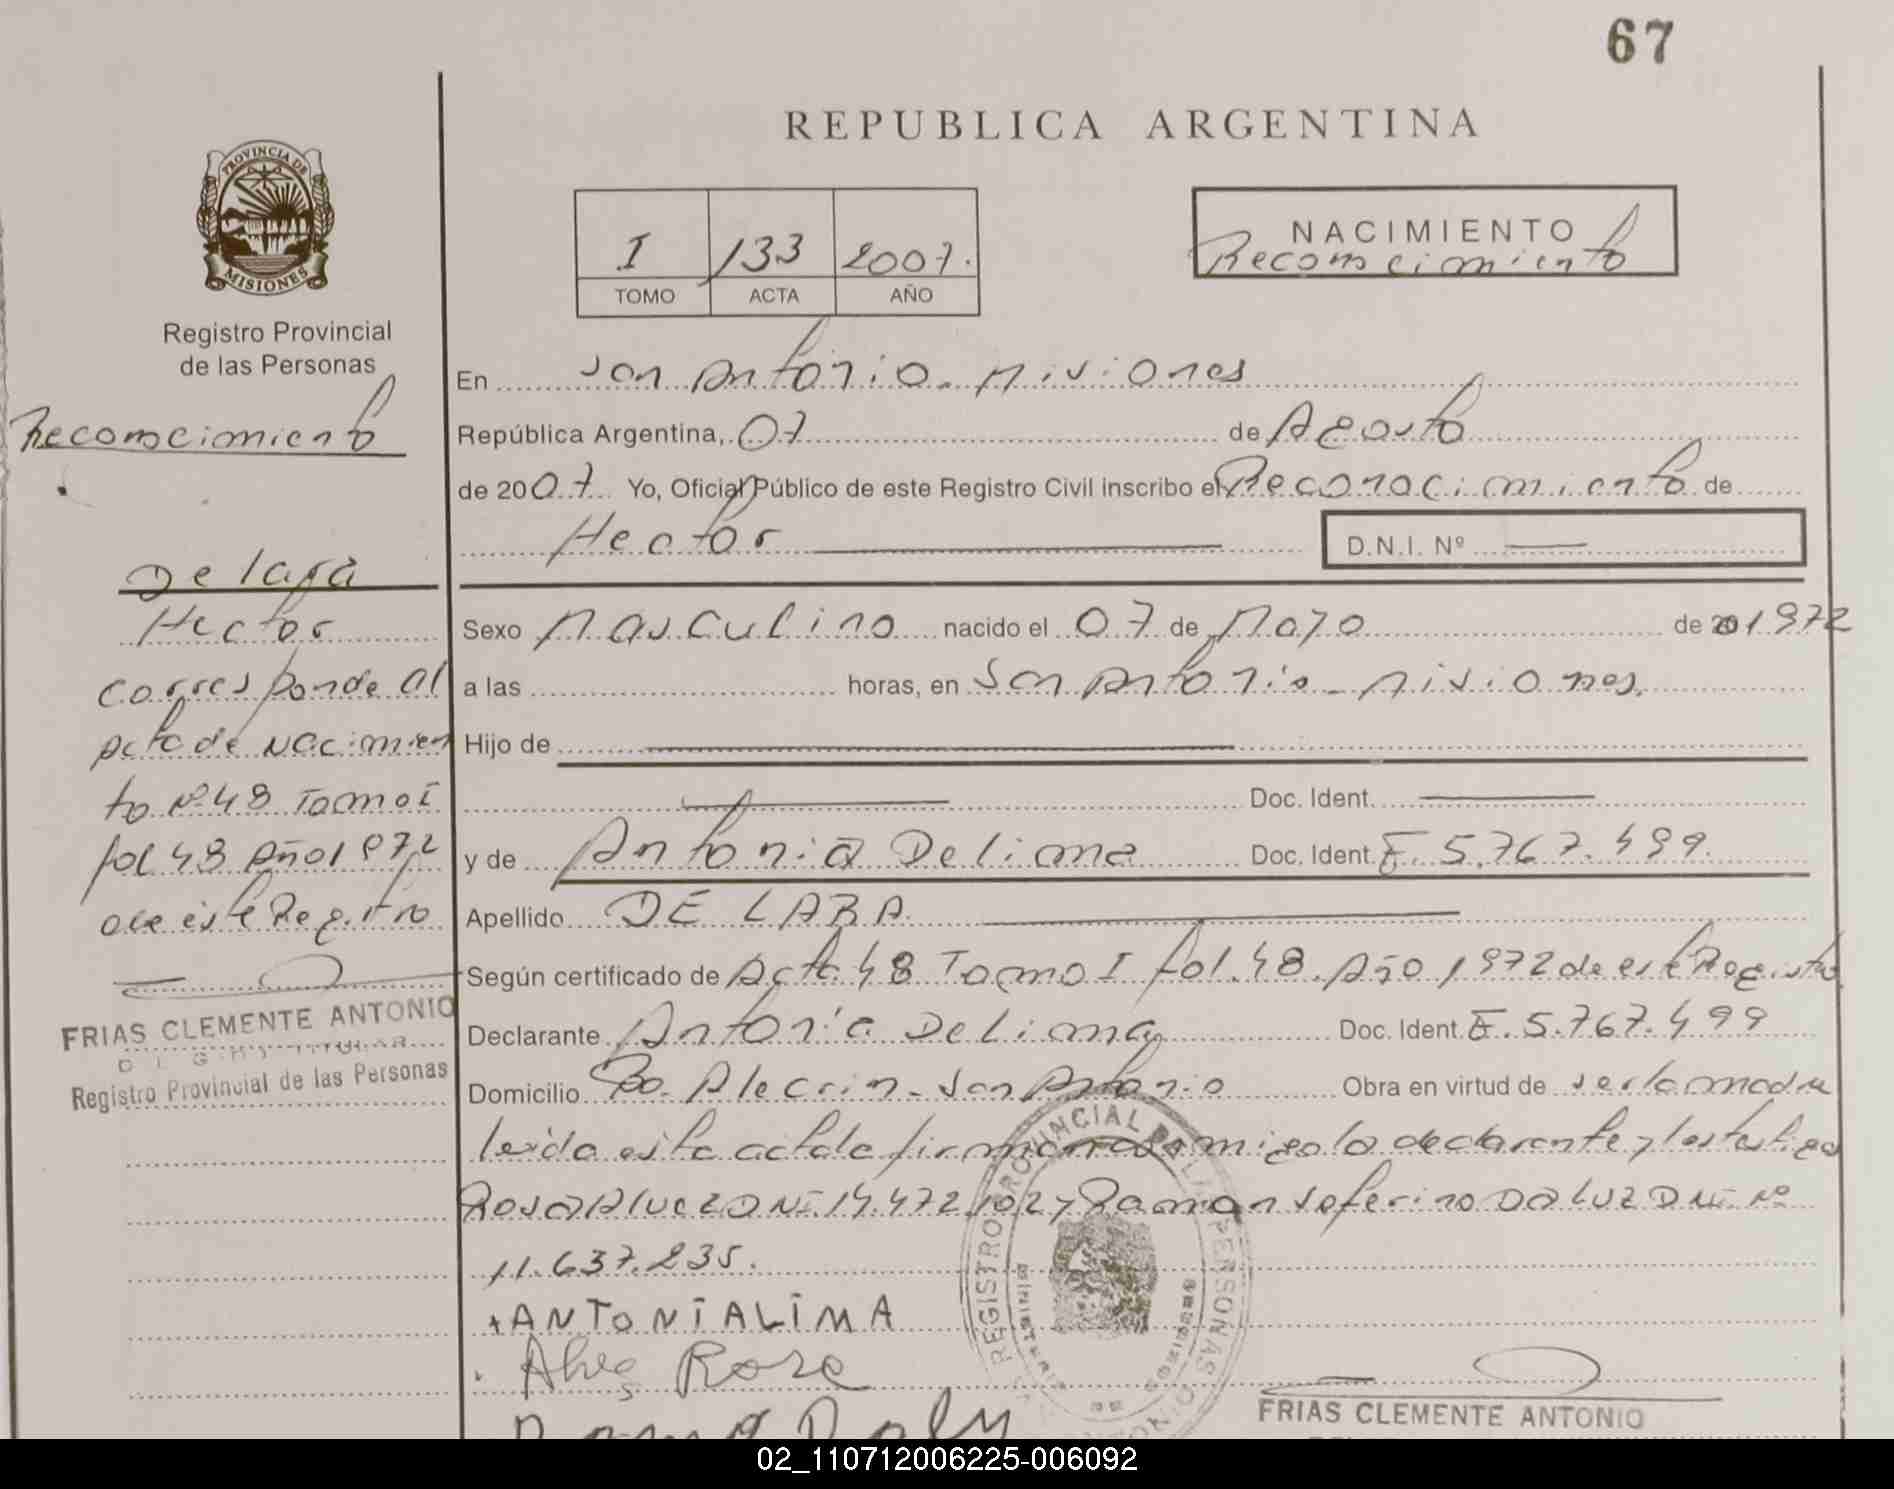 67
REPUBLICA ARGENTINA
PROVINCIA DE
MISIONES
Registro Provincial
de las Personas
I 133 2007.
TOMO ACTA AÑO
NACIMIENTO
Reconocimiento
En San Antonio - Misiones
República Argentina, 07 de Agosto
de 2007 Yo, Oficial Público de este Registro Civil inscribo el Reconocimiento de
Hector D.N.I. Nº
Sexo Masculino nacido el 07 de Mayo de 1972
a las horas, en San Antonio - Misiones.
Hijo de
Doc. Ident.
y de Antonia De lima Doc. Ident. F. 5.767.499.
Apellido DE LARA.
Según certificado de Acta 48 Tomo I fol. 48. Año 1972 de este Registro
Declarante Antonia De Lima Doc. Ident. F. 5.767.499
Domicilio Bo. Alecrin - San Antonio Obra en virtud de ser la madre
leida esta acta la firman conmigo la declarante y los testigos
Rosa DNI. 14.472.102 y Ramon Seferino DA LUZ DNI. Nº
11.637.235.
+ANTONIA LIMA
Alves Rosa
FRIAS CLEMENTE ANTONIO
Reconocimiento
De lara
Hector
corresponde al
acta de Nacimien
to Nº 48 Tomo I
fol 48 Año 1972
de este Registro
FRIAS CLEMENTE ANTONIO
TITULAR
Registro Provincial de las Personas
REGISTRO PROVINCIAL DE LAS PERSONAS
02_110712006225-006092